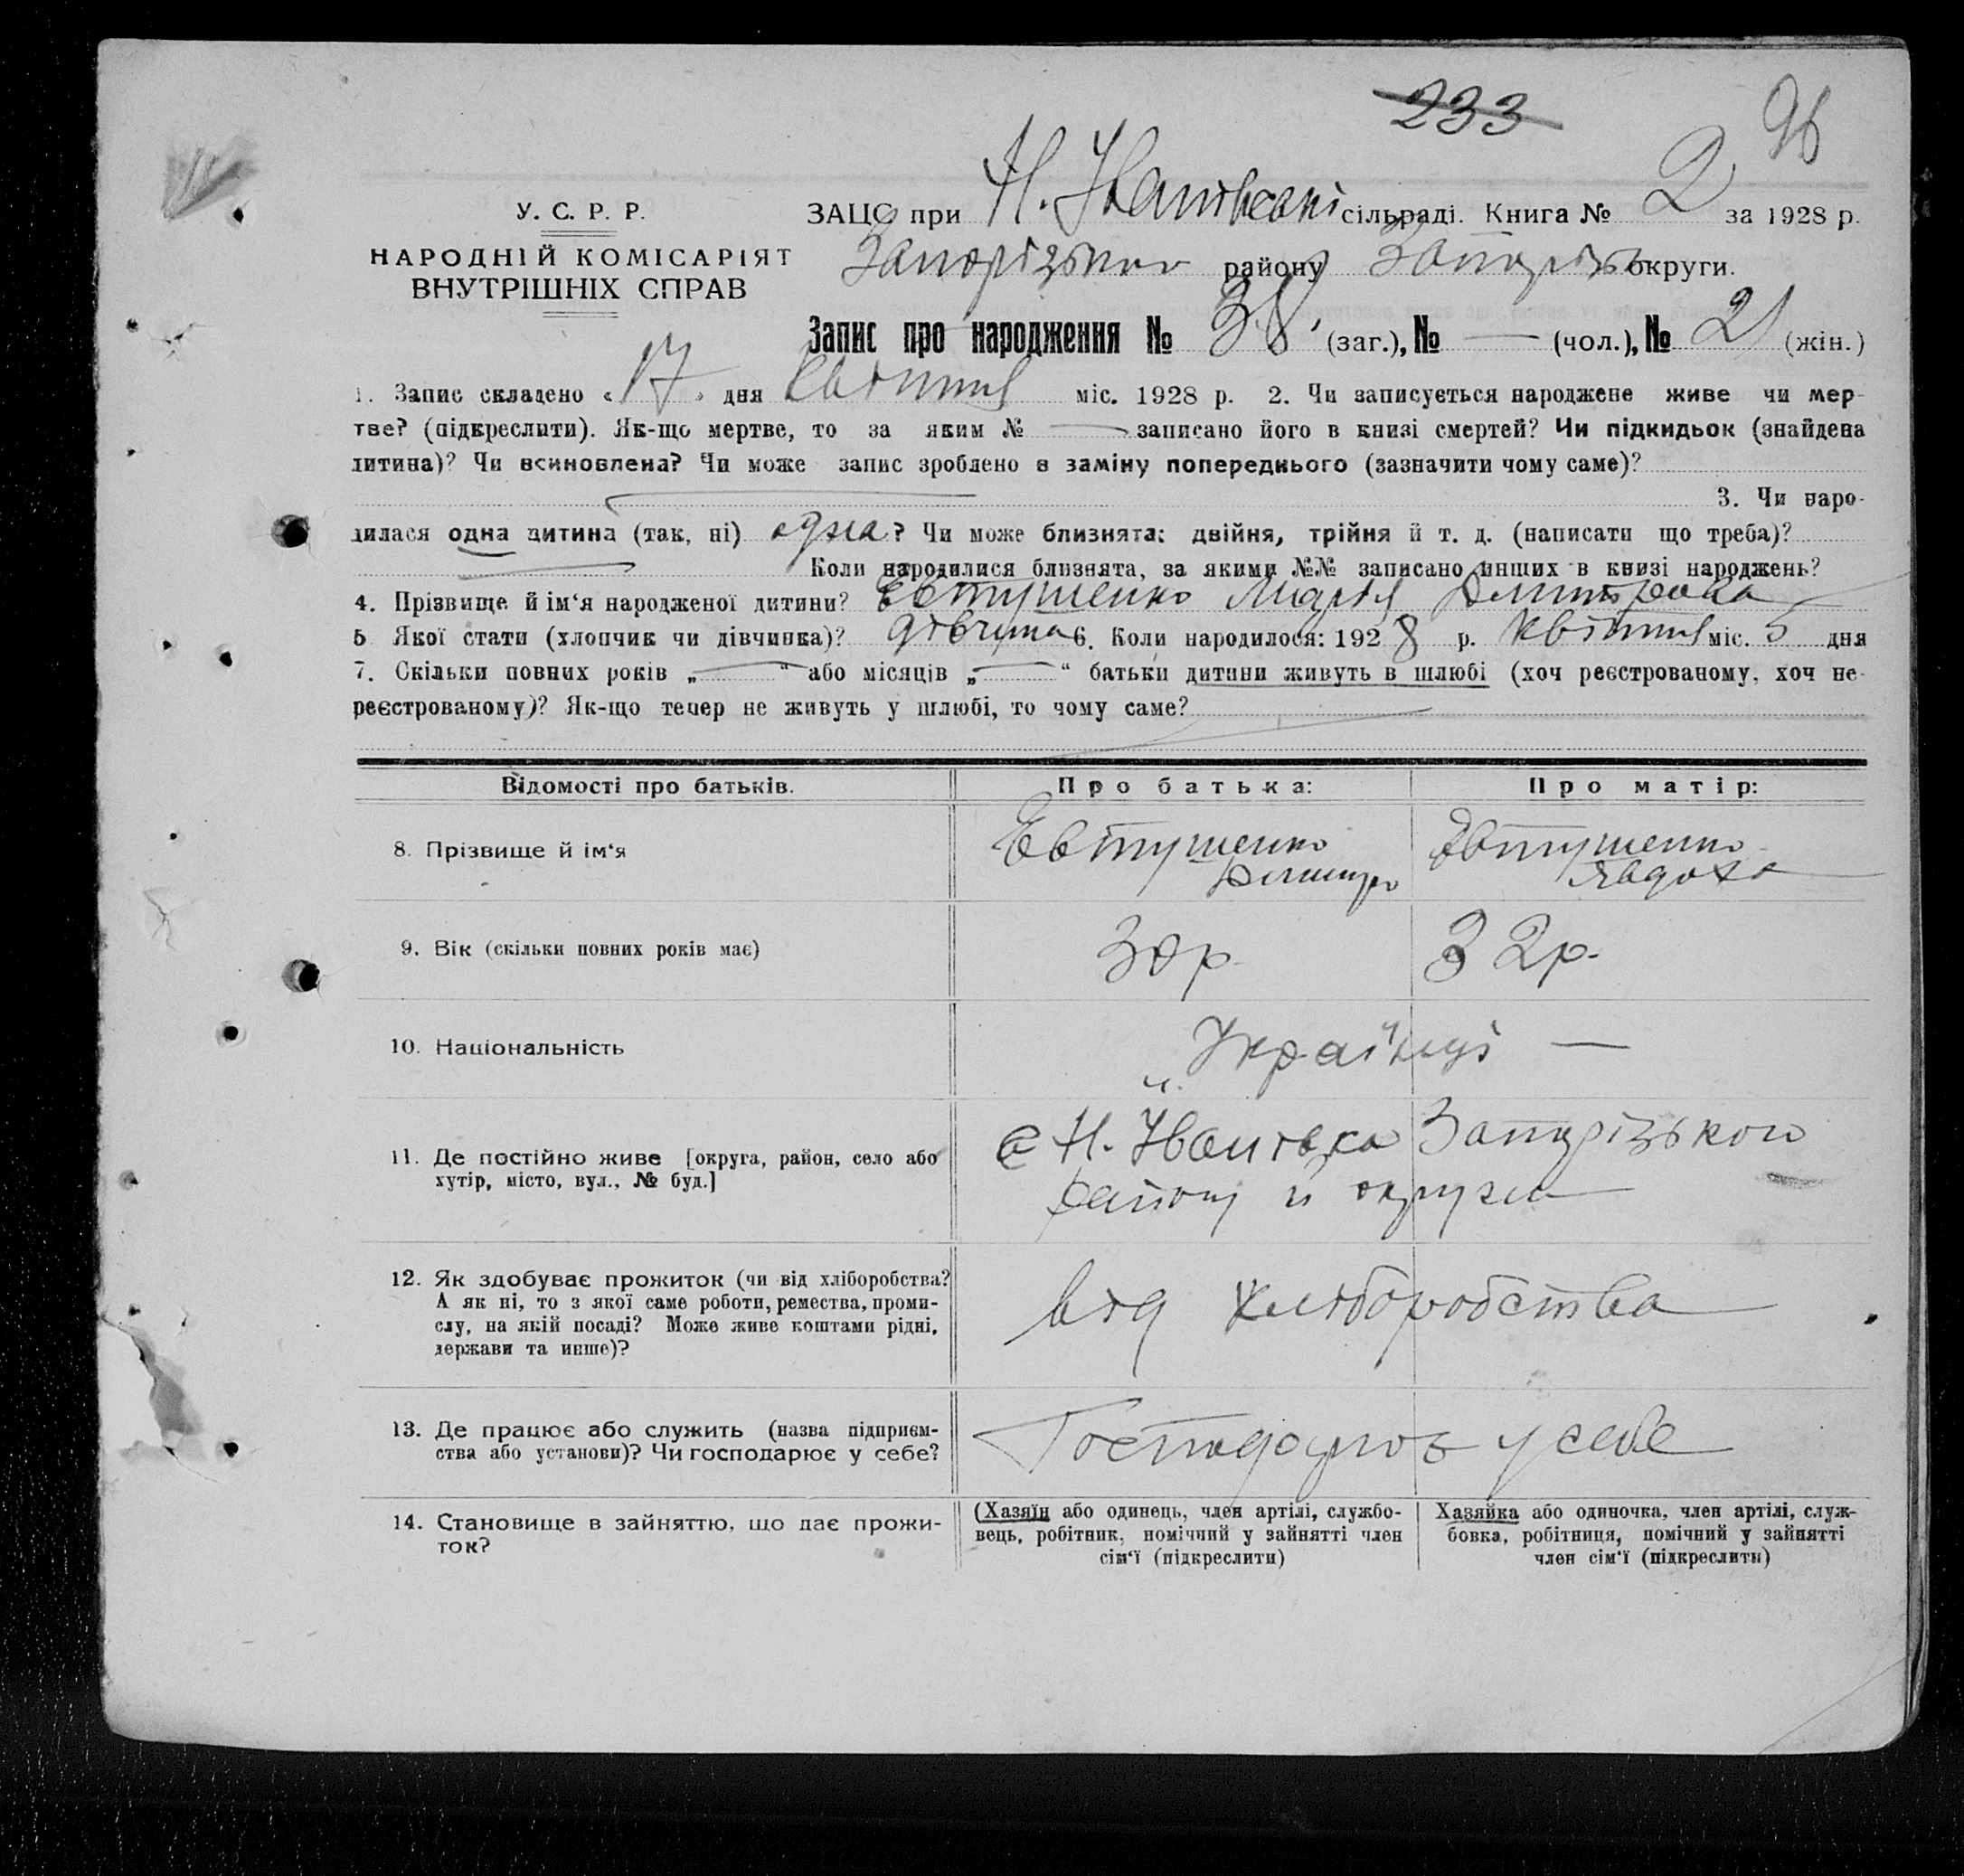 233
96
У. С. Р. Р.
НАРОДНІЙ КОМІСАРІЯТ
ВНУТРІШНІХ СПРАВ
ЗАЦС при Н. Іванівскі сільраді. Книга № 2 за 1928 р.
Запорізького району Запорізь округи.
Запис про народження № 38, (заг.), № — (чол.), № 21 (жін.)
1. Запис складено « 17 » дня Квітня міс. 1928 р. 2. Чи записується народжене живе чи мер-
тве? (підкреслити). Як-що мертве, то за яким № — записано його в книзі смертей? Чи підкидьок (знайдена
дитина)? Чи всиновлена? Чи може запис зроблено в заміну попереднього (зазначити чому саме)?
3. Чи наро-
дилася одна дитина (так, ні) одна? Чи може близнята: двійня, трійня й т. д. (написати що треба)?
Коли народилися близнята, за якими №№ записано инших в книзі народжень?
4. Прізвище й ім‘я народженої дитини? Евтушенко Марія Дмитровна
5 Якої стати (хлопчик чи дівчинка)? дівчина 6. Коли народилося: 1928 р. квітня міс. 5 дня
7. Скільки повних років „ — “ або місяців „ — “ батьки дитини живуть в шлюбі (хоч реєстрованому, хоч не-
реєстрованому)? Як-що тепер не живуть у шлюбі, то чому саме?
Відомості про батьків. Про батька: Про матір:
8. Прізвище й ім‘я Евтушенко Дмитро Евтушенко Явдоха
9. Вік (скільки повних років має) 30р 32р.
10. Національність „Українці" —
11. Де постійно живе [округа, район, село або
хутір, місто, вул., № буд.]
с Н. Іванівка Запорізького
району й округи
12. Як здобуває прожиток (чи від хліборобства?
А як ні, то з якої саме роботи, ремества, проми-
слу, на якій посаді? Може живе коштами рідні,
держави та инше)?
від хліборобства
13. Де працює або служить (назва підприєм-
ства або установи)? Чи господарює у себе?
Господарює у себе
14. Становище в зайняттю, що дає прожи-
ток?
(Хазяїн або одинець, член артілі, службо-
вець, робітник, помічний у зайнятті член
сім‘ї (підкреслити)
Хазяйка або одиночка, член артілі, служ-
бовка, робітниця, помічний у зайнятті
член сім‘ї (підкреслити)